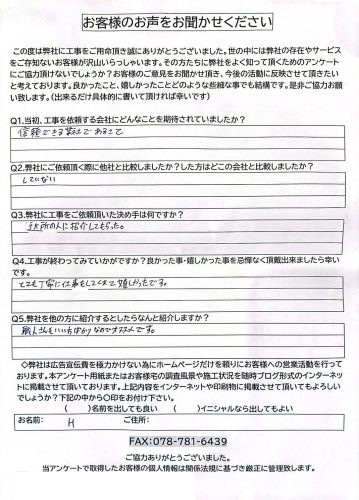 お客様のお声をお聞かせください
この度は弊社に工事をご用命頂き誠にありがとうございました。世の中には弊社の存在やサービス
をご存知ないお客様が沢山いらっしゃいます。その方たちに弊社をよく知って頂くためのアンケート
にご協力頂けないでしょうか?お客様のご意見をお聞かせ頂き、今後の活動に反映させて頂きたい
と考えております。良かったこと、嬉しかったことどのような些細な事でも結構です。是非ご協力お願
い致します。(出来るだけ具体的に書いて頂ければ幸いです)
Q1.当初、工事を依頼する会社にどんなことを期待されていましたか?
信頼できる会社であること
Q2.弊社にご依頼頂く際に他社と比較しましたか?した方はどこの会社と比較しましたか?
していない
Q3.弊社に工事をご依頼頂いた決め手は何ですか?
近所の人に紹介してもらった。
Q4.工事が終わってみていかがですか?良かった事・嬉しかった事を忌憚なく頂戴出来ましたら幸い
です。
とても丁寧に仕事をしてくれて嬉しかったです。
Q5.弊社を他の方に紹介するとしたらなんと紹介しますか?
職人さんもいい方ばかりなのでオススメです。
◇弊社は広告宣伝費を極力かけない為にホームページだけを頼りにお客様への営業活動を行って
おります。本アンケート用紙またはお客様宅の調査風景や施工状況を随時ブログ形式のインターネッ
トに掲載させて頂いております。上記内容をインターネットや印刷物に掲載させて頂いてもよろしい
でしょうか?下記の中から○印をお付け下さい。
( )名前を出しても良い ( )イニシャルなら出してもよい
お名前: H ご住所:
FAX:078-781-6439
ご協力ありがとうございました。
当アンケートで取得したお客様の個人情報は関係法規に基づき厳正に管理致します。